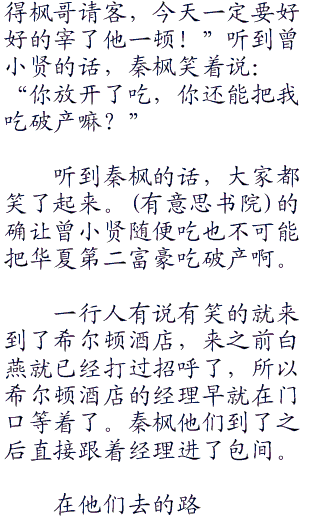 得枫哥请客，今天一定要好
好的宰了他一顿！”听到曾
小贤的话，秦枫笑着说：
“你放开了吃，你还能把我
吃破产嘛？”
听到秦枫的话，大家都
笑了起来。(有意思书院)的
确让曾小贤随便吃也不可能
把华夏第二富豪吃破产啊。
一行人有说有笑的就来
到了希尔顿酒店，来之前白
燕就已经打过招呼了，所以
希尔顿酒店的经理早就在门
口等着了。秦枫他们到了之
后直接跟着经理进了包间。
在他们去的路